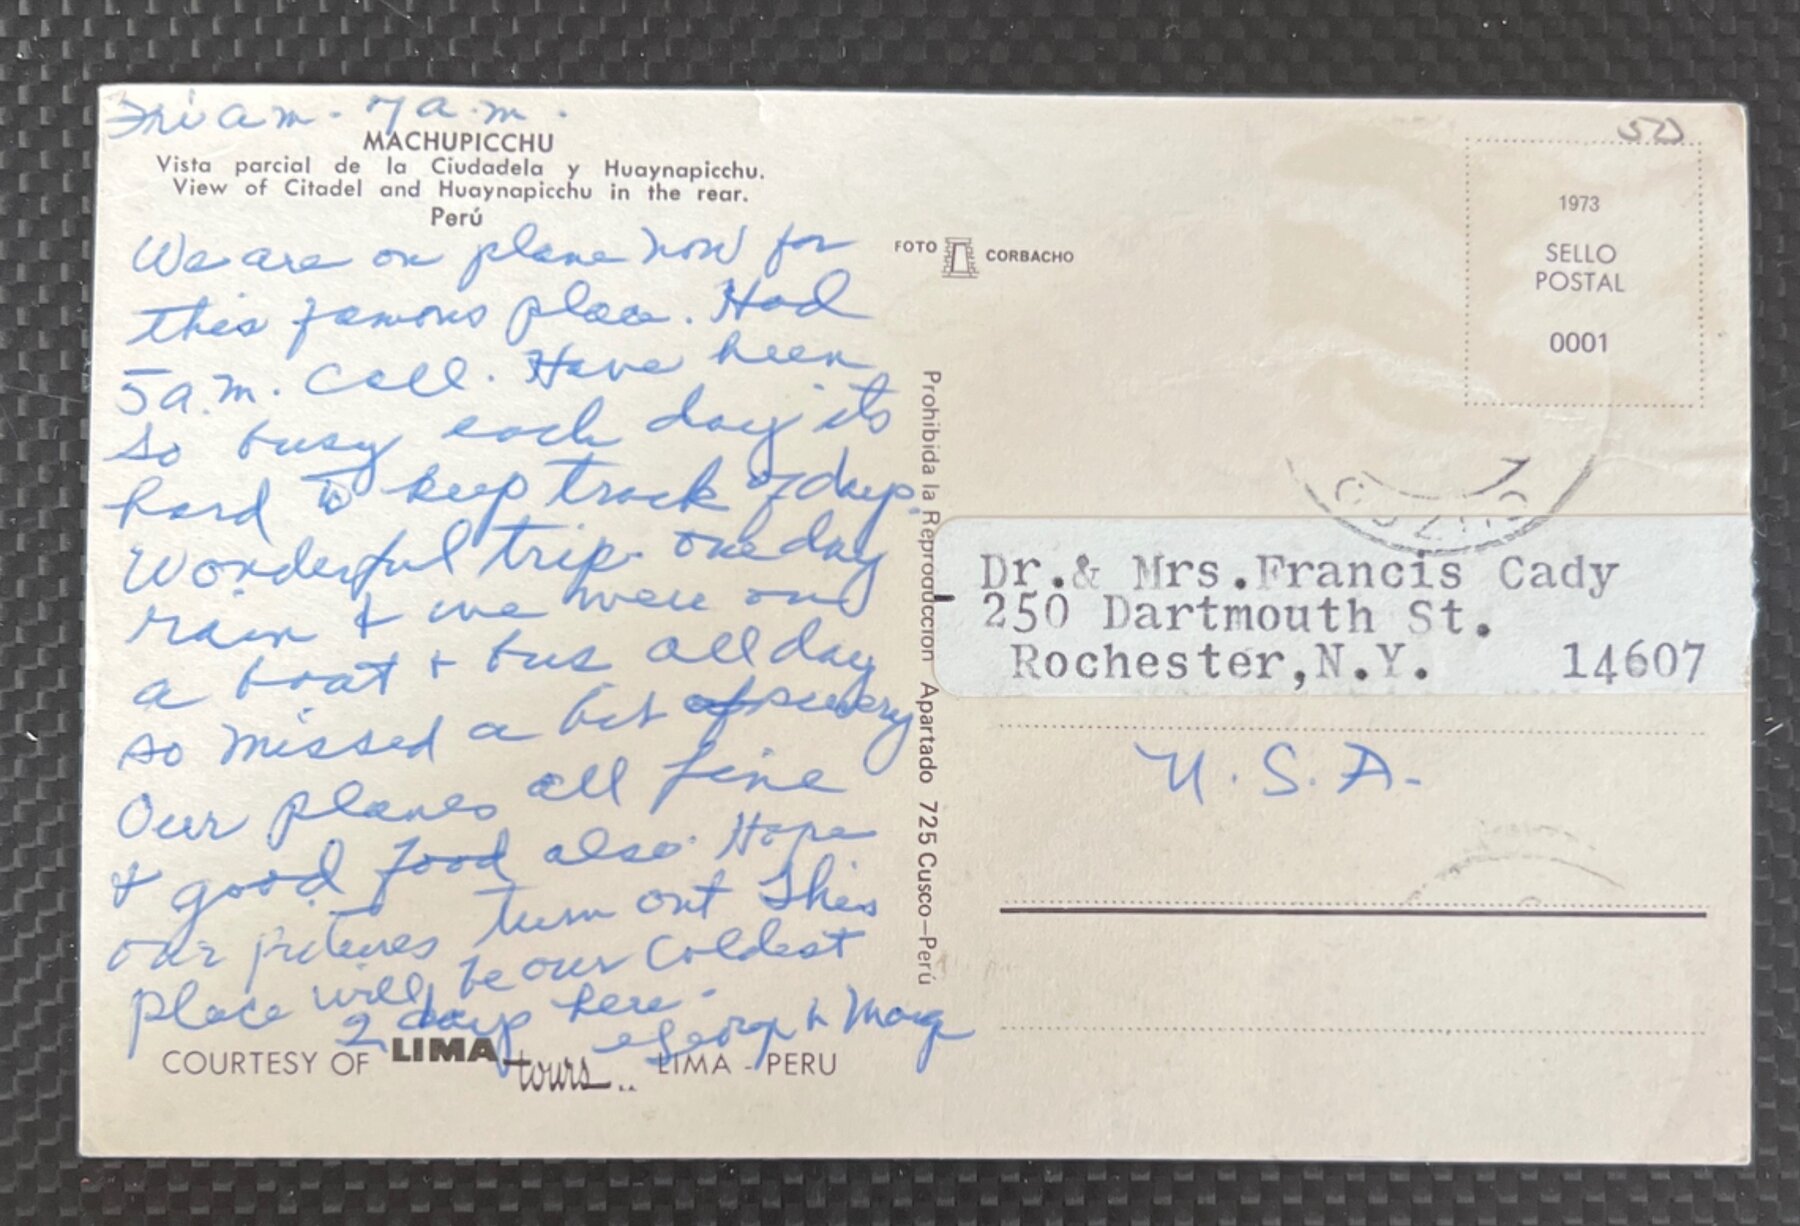 Fri am. 7 a.m.
MACHUPICCHU
Vista parcial de la Ciudadela y Huaynapicchu.
View of Citadel and Huaynapicchu in the rear.
Perú
We are on plane now for
this famous place. Had
5 a.m. call. Have been
so busy each day its
hard to keep track of days.
Wonderful trip. One day
rain & we were on
a boat & bus all day
so missed a bit of scenery
Our planes all fine
& good food also. Hope
our pictures turn out This
place will be our coldest
2 days here.
George & Marg
COURTESY OF LIMA tours.. LIMA - PERU
FOTO CORBACHO
Prohibida la Reproducción Apartado 725 Cusco—Perú
1973
SELLO
POSTAL
0001
CUZCO
Dr.& Mrs.Francis Cady
250 Dartmouth St.
Rochester,N.Y. 14607
U.S.A.